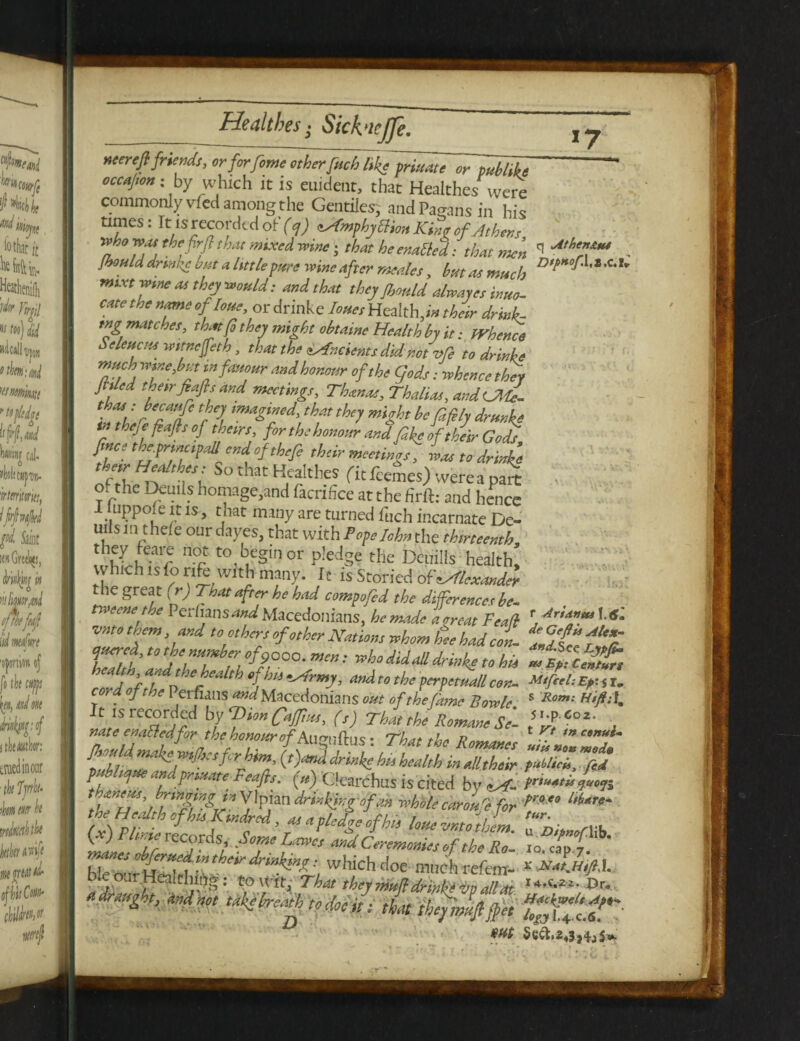 Healthes; Sicknesse. 17
neerest friends, or for some other such like priuate or publike
occasion: by which it is euident, that Healthes were
commonly vsed among the Gentiles, and Pagans in his
times: It is recorded of (q) Amphyction King of Athens,
who was the first that mixed wine; that he enacted: that men
should drinke but a little pure wine after meales, but as much
mixt wine as they would: and that they should alwayes inuo-
cate the name of Ioue, or drinke Ioues Health, in their drink-
ing matches, that so they might obtaine Health by it: Whence
Seleucus witnesseth, that the Ancients did not vse to drinke
much wine, but in fauour and honour of the Gods: whence they
stiled their feasts and meetings, Thanas, Thalias, and Me-
thas: because they imagined, that they might be safely drunke
in these feasts of theirs, for the honour and sake of their Gods,
since the principall end of these their meetings, was to drinke
their Healthes: So that Healthes (it seemes) were a part
of the Deuils homage, and sacrifice at the first: and hence
I suppose it is, that many are turned such incarnate De-
uils in these our dayes, that with Pope Iohn the thirteenth,
they feare not to begin or pledge the Deuills health,
which is so rife with many. It is Storied of Alexander
the great (r) That after he had composed the differences be-
tweene the Persians and Macedonians, he made a great Feast
vnto them, and to others of other Nations whom hee had con-
quered, to the number of 9000. men: who did all drinke to his
health, and the health of his Army, and to the perpetuall con-
cord of the Persians and Macedonians out of the same Bowle.
It is recorded by Dion Cassius, (s) That the Romane Se-
nate enacted for the honour of Augustus: That the Romanes
should make wishes for him, (t) and drinke his health in all their
publique and priuate Feasts. (u) Clearchus is cited by A-
thaneus, bringing in Vlpian drinking of an whole carouse for
the Health of his Kindred, as a pledge of his loue vnto them.
(x) Plinie records, Some Lawes and Ceremonies of the Ro-
manes obserued in their drinking: which doe much resem-
ble our Healthing: to wit, That they must drinke vp all at
a draught, and not take breath to doe it: that they must spet
D
out
q Athenæus
Dipnos.l.2.c.1.
r Arianus l.6.
de Gestis Alex-
and. See Lypsi-
us Ep: Centurs
Miscel: Ep: 51.
s Rom: Hist:l.
51.p.602.
t Vt in conui-
uiis non modo
publicis, sed
priuatis quoqs
pro eo libare-
tur.
u Dipnos.lib.
10. cap 7.
x Nat.Hist.l.
14.c.22. Dr.
Hackwels Apo-
logy l.4.c.6.
Sect.2,3,4,5